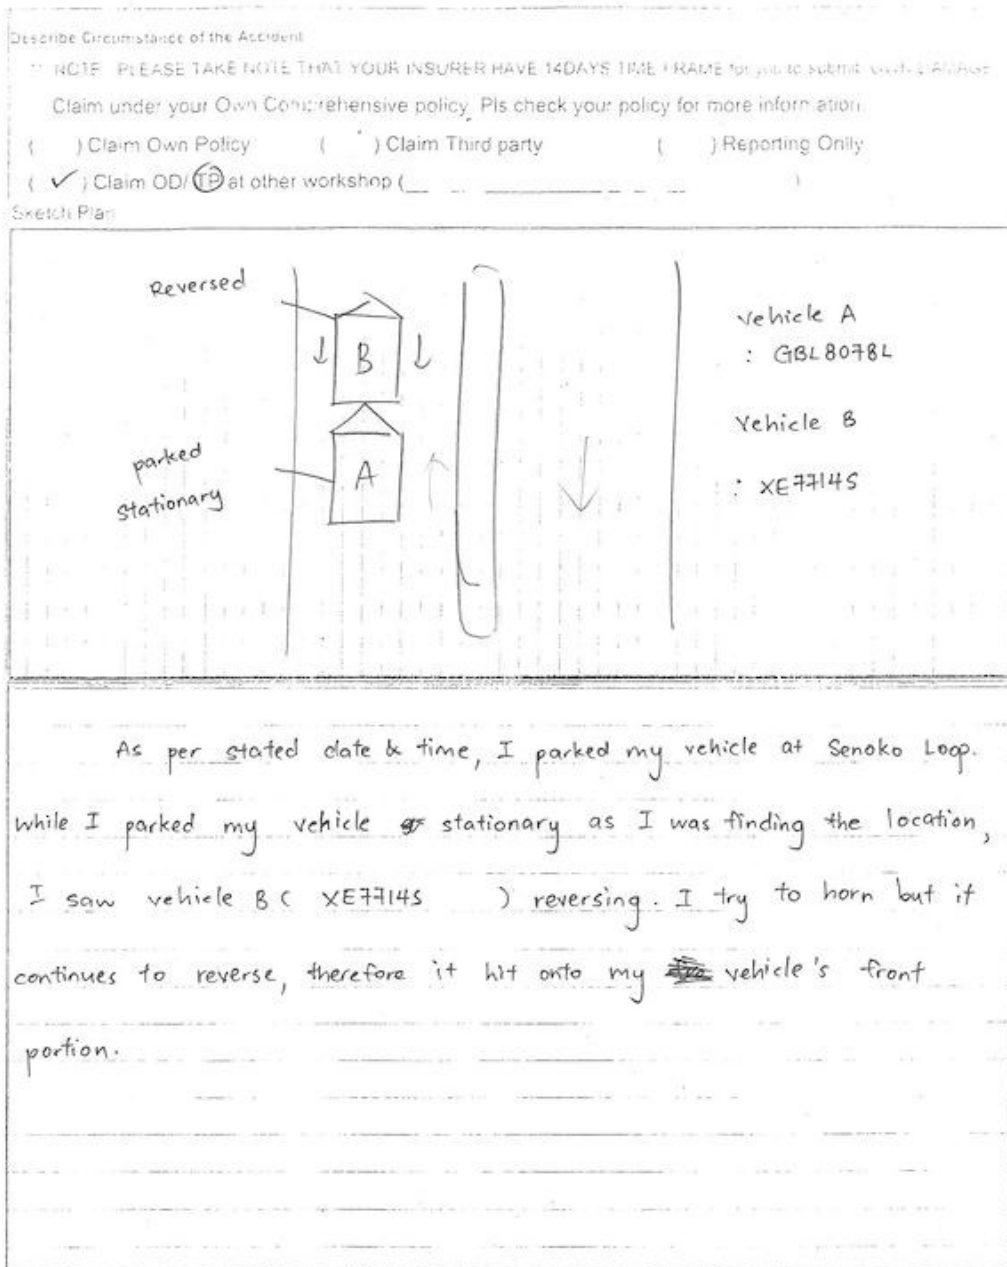 Describe Circumstance of the Accident
NOTE PLEASE TAKE NOTE THAT YOUR INSURER HAVE 14DAYS TIME FRAME for you to submit
Claim under your Own Comprehensive policy. Pls check your policy for more information.
( ) Claim Own Policy ( ) Claim Third party ( ) Reporting Only
( ✓ ) Claim OD/ TP at other workshop ( )
Sketch Plan
Reversed
B
A
parked
stationary
Vehicle A
: GBL8078L
Vehicle B
: XE7714S
As per stated date & time, I parked my vehicle at Senoko Loop.
while I parked my vehicle stationary as I was finding the location,
I saw vehicle B ( XE7714S ) reversing. I try to horn but it
continues to reverse, therefore it hit onto my vehicle's front
portion.